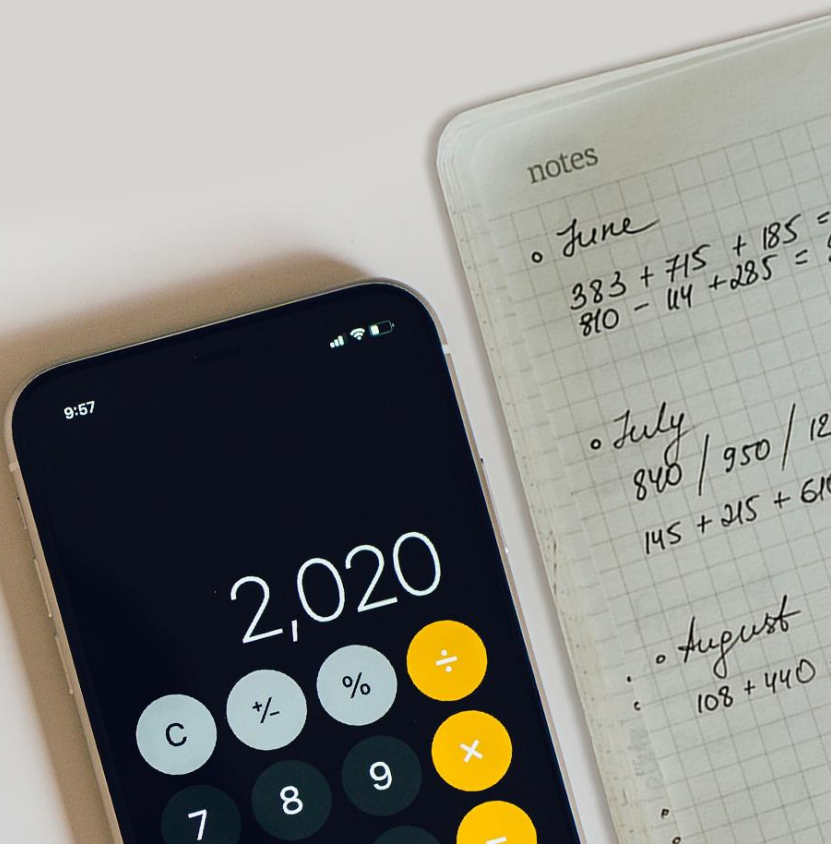 9:57
2,020
C +/- % ÷
7 8 9 ×
notes
June
383 + 715 + 185 =
810 - 44 + 285 =
July
840 / 950 / 12
145 + 215 + 610
August
108 + 440